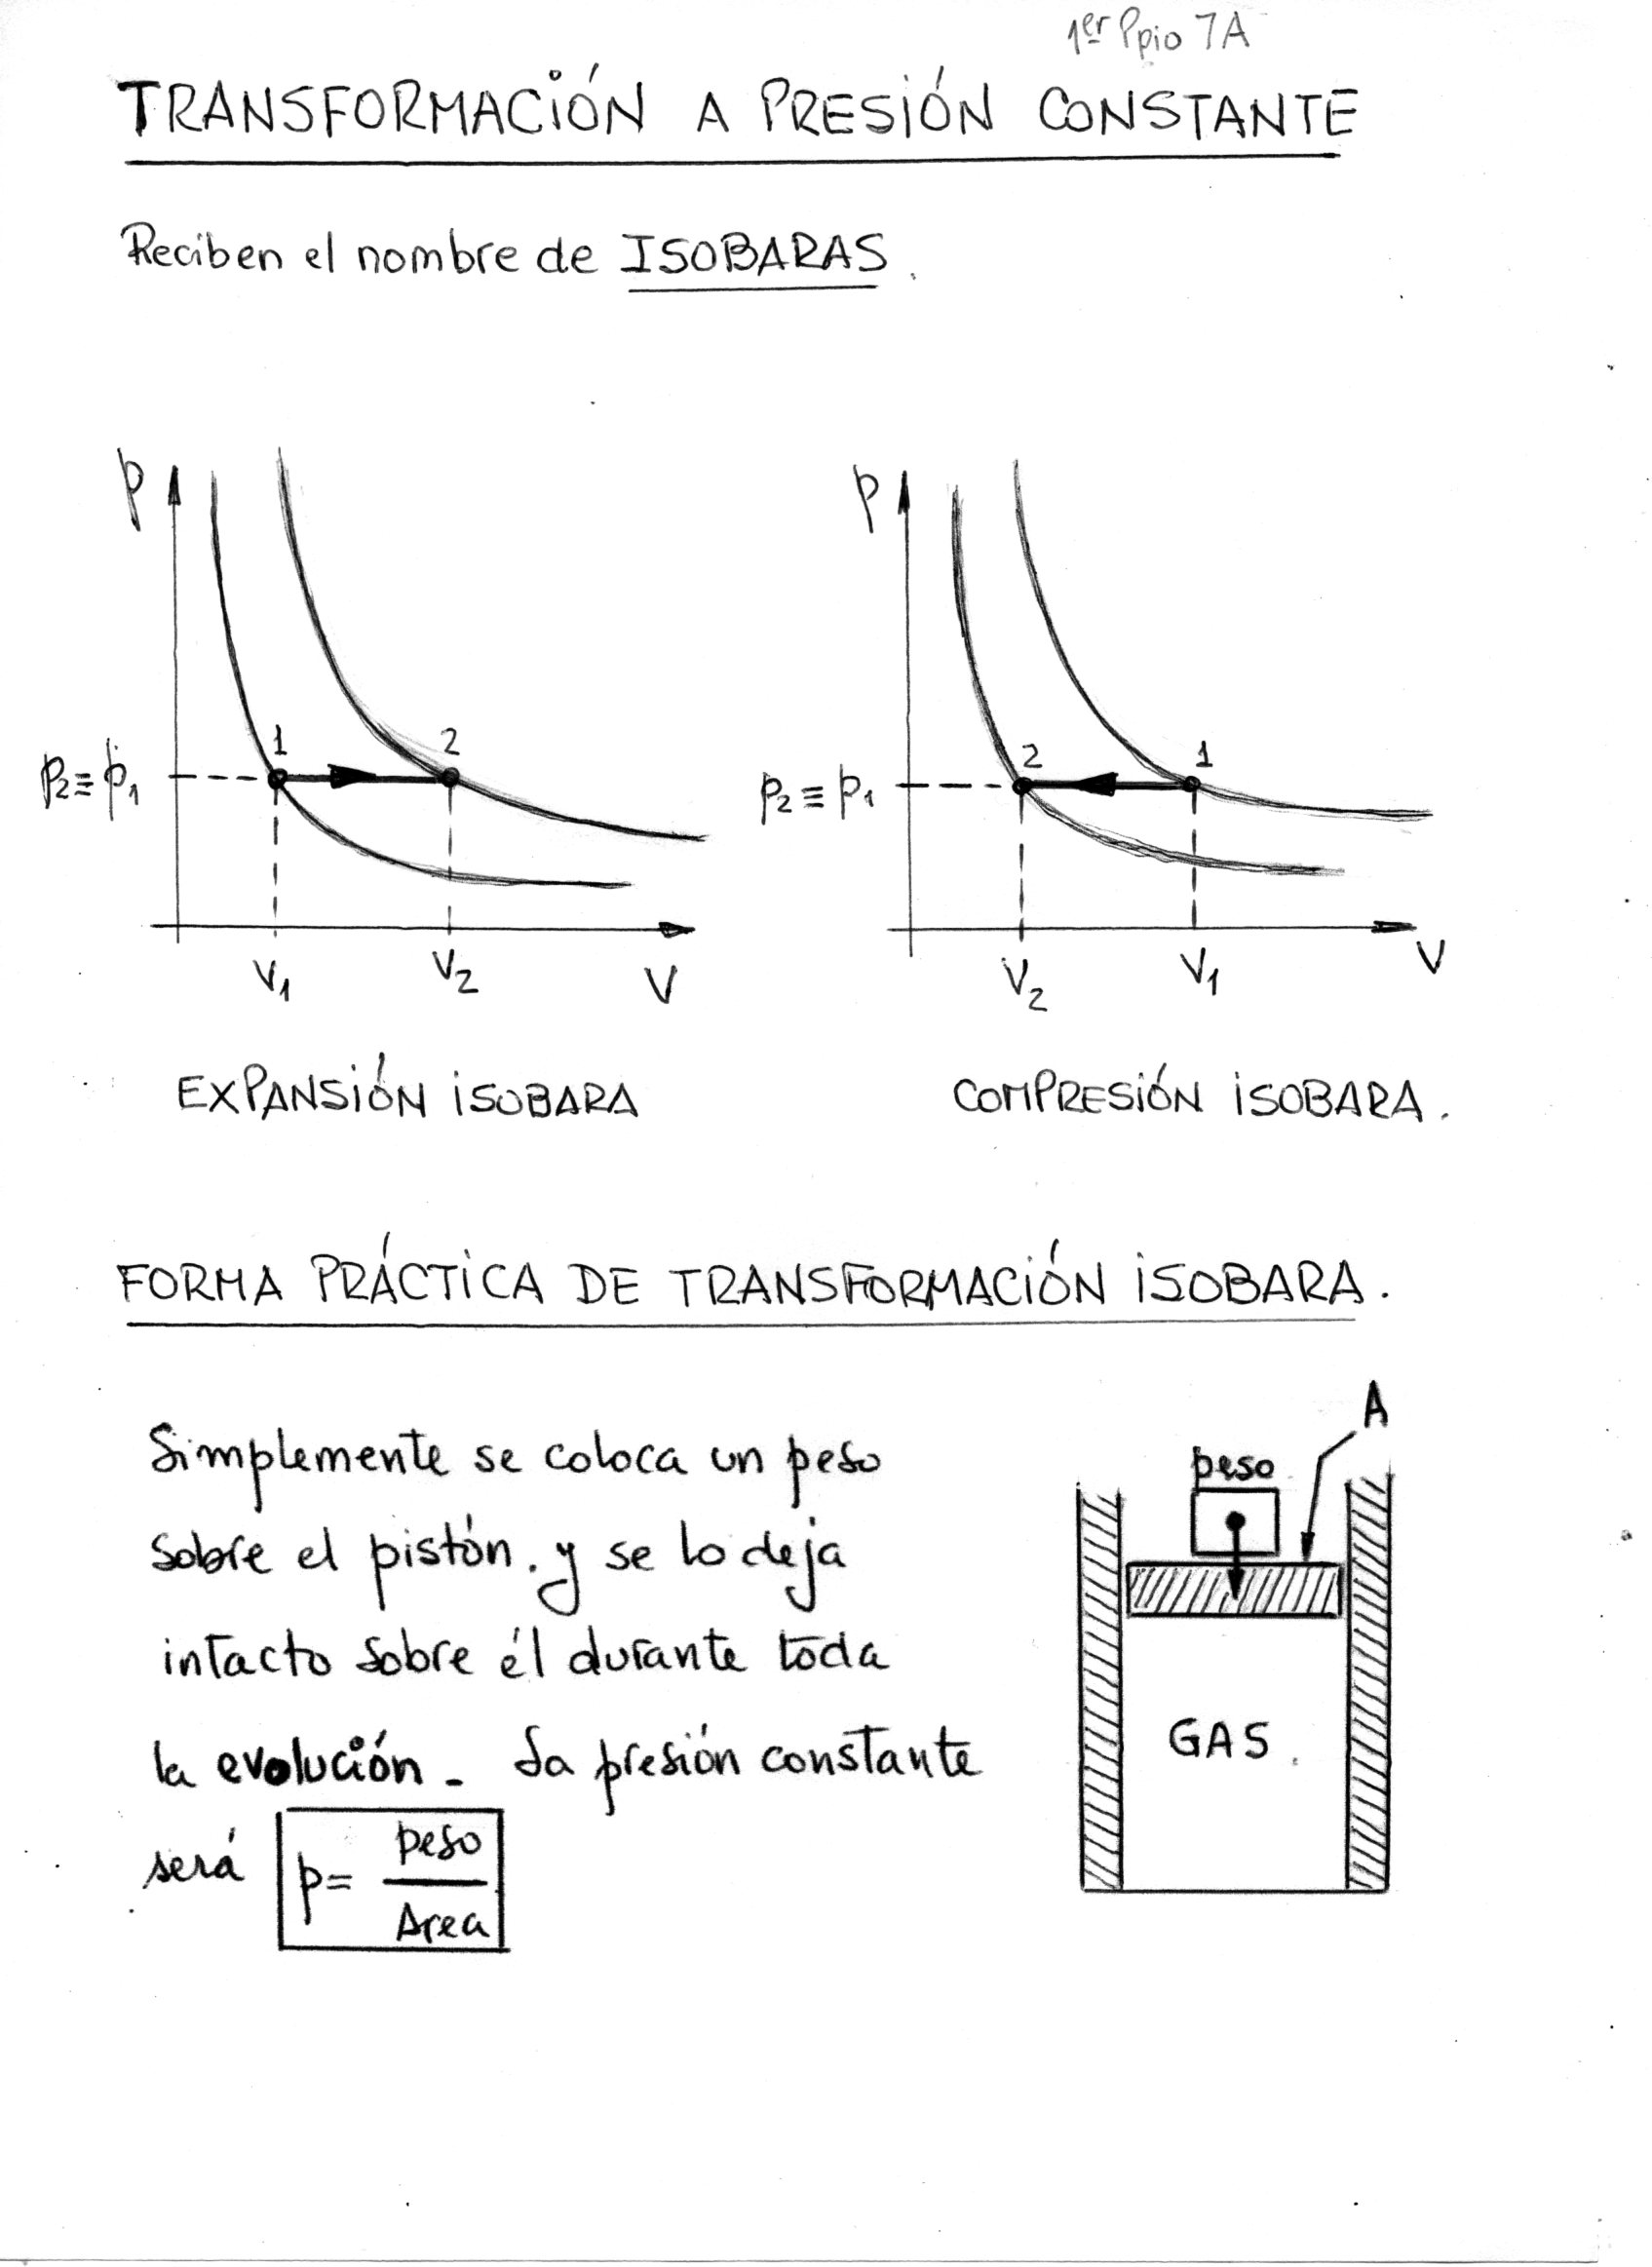 1er Ppio 7A
TRANSFORMACIÓN A PRESIÓN CONSTANTE
Reciben el nombre de ISOBARAS.
p
p2 ≡ p1
1
2
V1
V2
V
p
p2 ≡ p1
2
1
V2
V1
V
EXPANSIÓN ISOBARA
COMPRESIÓN ISOBARA.
FORMA PRÁCTICA DE TRANSFORMACIÓN ISOBARA.
Simplemente se coloca un peso
sobre el pistón. y se lo deja
intacto sobre él durante toda
la evolución. La presión constante
será p = peso / Area
A
peso
GAS.